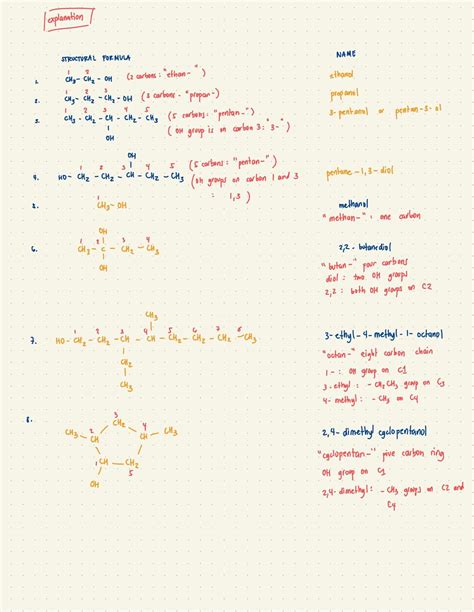 explanation
STRUCTURAL FORMULA NAME
1 2
1. CH3 - CH2 - OH (2 carbons: "ethan-") ethanol
1 2 3
2. CH3 - CH2 - CH2 - OH (3 carbons - "propan-") propanol
1 2 3 4 5
3. CH3 - CH2 - CH - CH2 - CH3 (5 carbons: "pentan-") 3-pentanol or pentan-3-ol
OH (OH group is on carbon 3: "3-")
OH
1 2 3 4 5 (5 carbons: "pentan-")
4. HO - CH2 - CH2 - CH - CH2 - CH3 (OH groups on carbon 1 and 3 pentane-1,3-diol
: 1,3)
CH3 - OH methanol
"methan-": one carbon
OH
1 2 3 4
6. CH3 - C - CH2 - CH3 2,2-butanediol
OH
"butan-" four carbons
diol: two OH groups
2,2: both OH groups on C2
CH3
1 2 3 4 5 6 7 8
7. HO - CH2 - CH2 - CH - CH - CH2 - CH2 - CH2 - CH3 3-ethyl-4-methyl-1-octanol
CH2
CH3
"octan-" eight carbon chain
1-: OH group on C1
3-ethyl: -CH2CH3 group on C3
4-methyl: -CH3 on C4
8.
3
CH2
CH3 - 2 CH 4 CH - CH3
1 CH - CH2 5
OH
2,4-dimethyl cyclopentanol
"cyclopentan-" five carbon ring
OH group on C1
2,4-dimethyl: -CH3 groups on C2 and C4